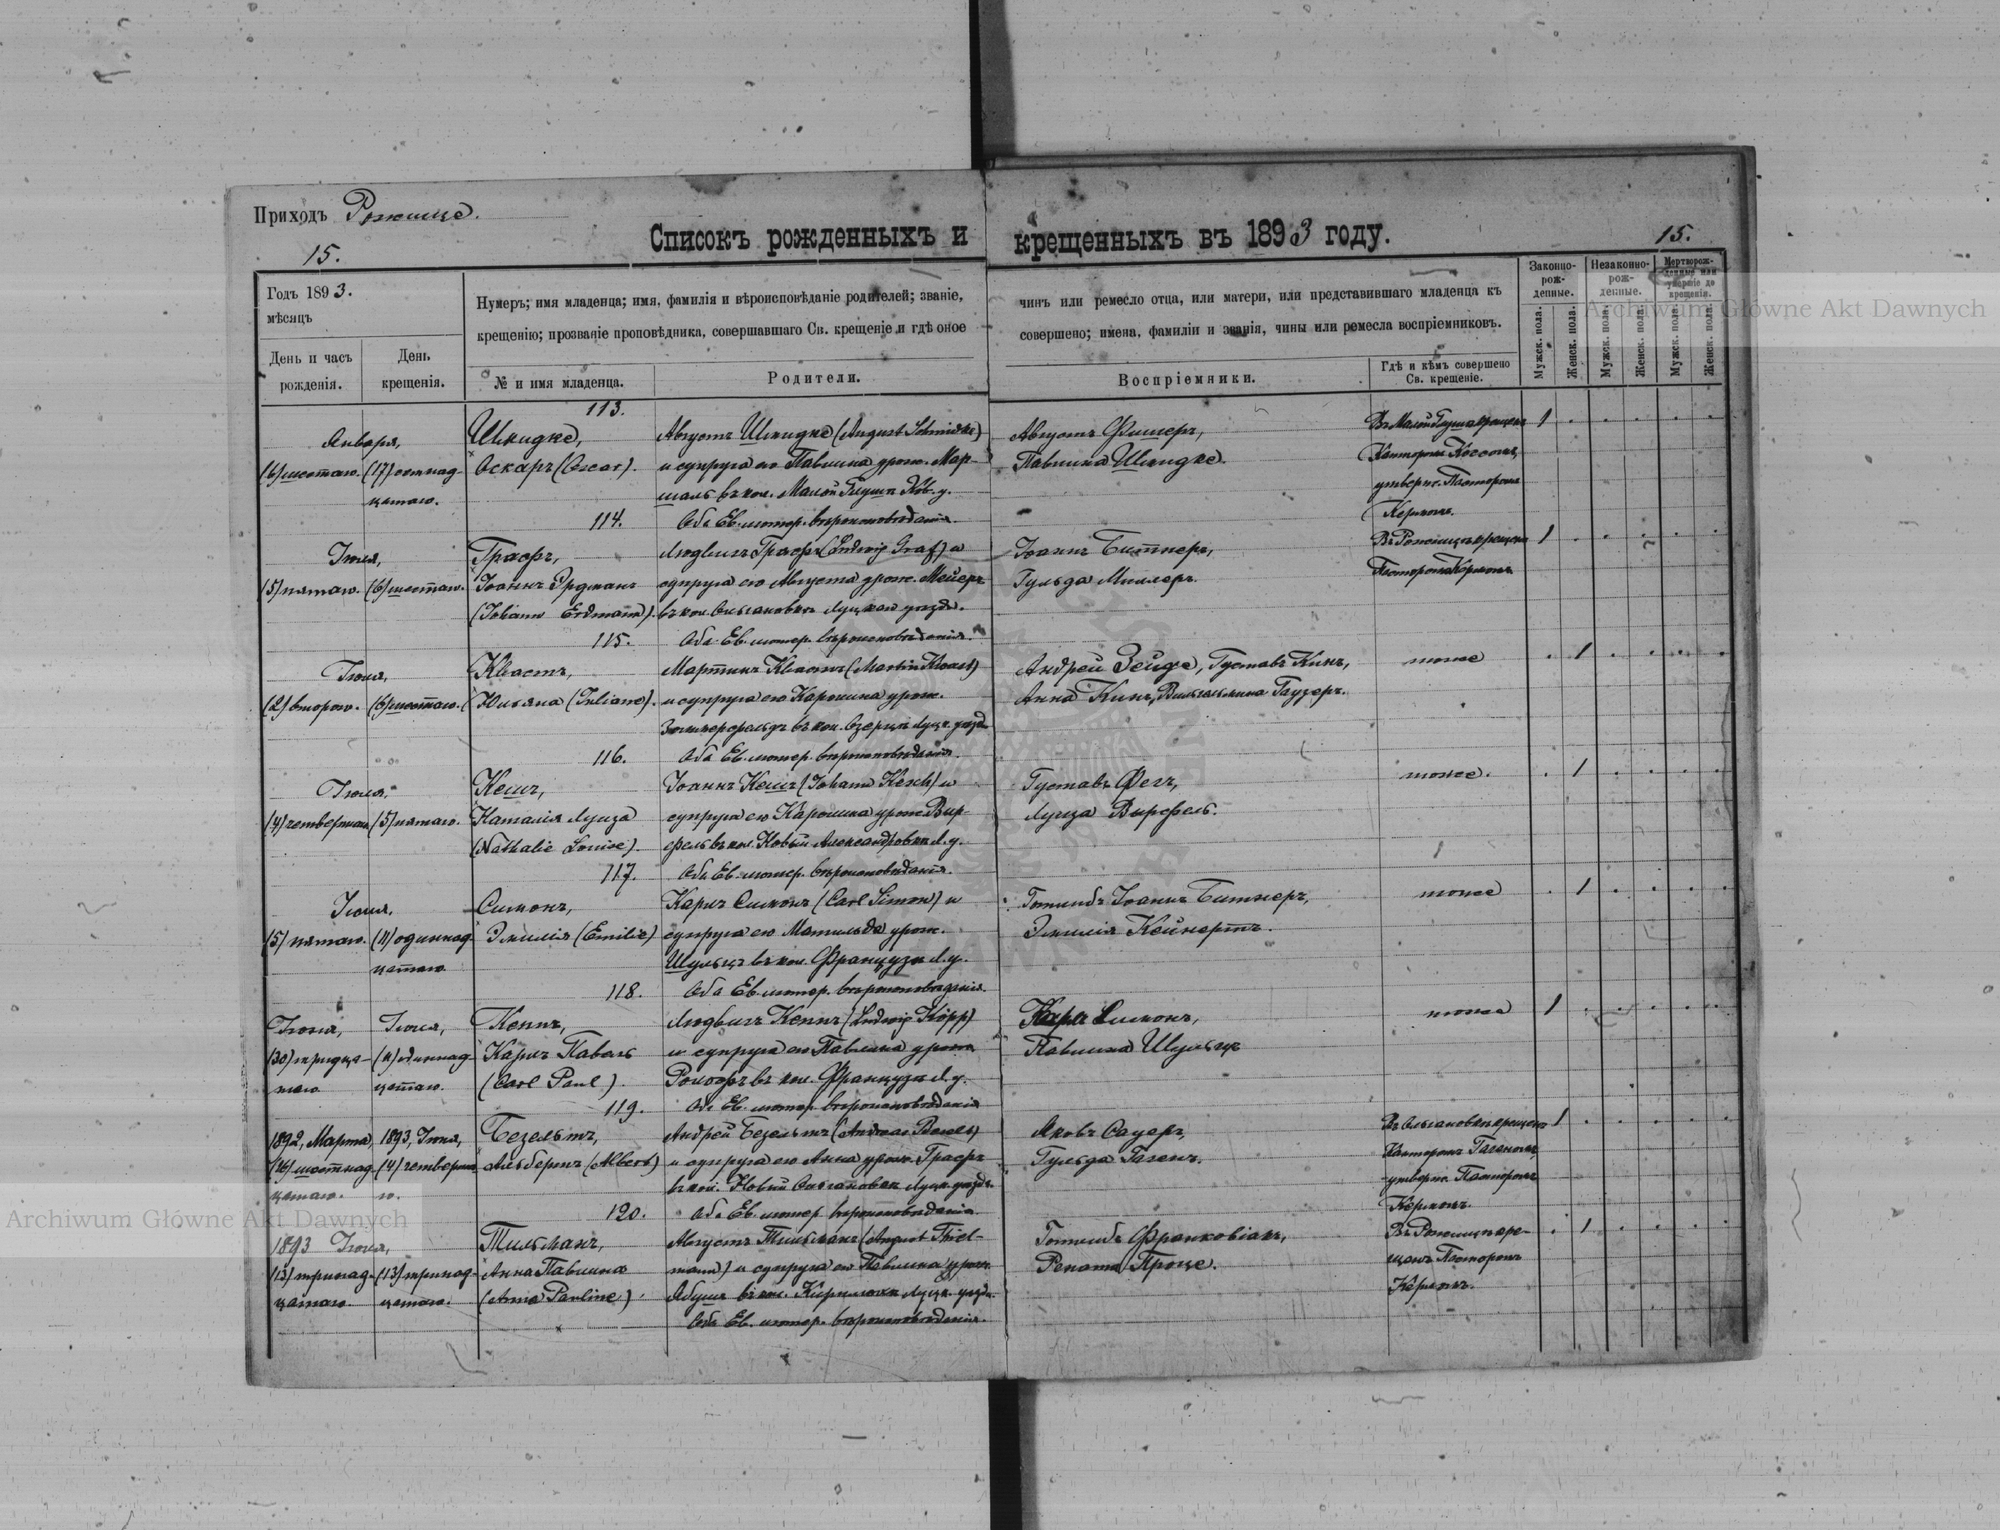 Приходъ Рожище.
15.
Списокъ рожденныхъ и крещенныхъ въ 1893 году.
15.
Годъ 1893.
мѣсяцъ
День и часъ рожденія.
День крещенія.
Нумеръ; имя младенца; имя, фамилія и вѣроисповѣданіе родителей; званіе, чинъ или ремесло отца, или матери, или представившаго младенца къ
крещенію; прозваніе проповѣдника, совершавшаго Св. крещеніе и гдѣ оное совершено; имена, фамиліи и званія, чины или ремесла воспріемниковъ.
№ и имя младенца.
Родители.
Воспріемники.
Гдѣ и кѣмъ совершено Св. крещеніе.
Законно-рож-денные.
Незаконно-рож-денные.
Мертворож-денные или умершіе до крещенія.
Мужск. пола.
Женск. пола.
Мужск. пола.
Женск. пола.
Мужск. пола.
Женск. пола.
113.
Января,
(6) шестаго. (17) семнад-
цатаго.
Шмидке,
Оскаръ (Oscar).
Августъ Шмидке (August Schmidke)
и супруга его Павлина урож. Мар-
шаль въ кол. Малой Глушѣ Ков. у.
Оба Ев. лютер. вѣроисповѣданія.
Августъ Фишеръ,
Павлина Шмидке.
Въ Малой Глушѣ крещенъ
Канторомъ
утвержд. Пасторомъ
Керномъ.
1
114.
Іюля,
(5) пятаго. (6) шестаго.
Графъ,
Іоаннъ Эрдманъ
(Johann Erdmann).
Людвигъ Графъ (Ludwig Graf) и
супруга его Августа урож. Мейеръ
въ кол. Ольгановкѣ Луцкаго уѣзда.
Оба Ев. лютер. вѣроисповѣданія.
Іоаннъ Битнеръ,
Гульда Миллеръ.
Въ Рожищахъ крещенъ
Пасторомъ Керномъ.
1
115.
Іюля,
(2) второго. (6) шестаго.
Квастъ,
Юліана (Juliane).
Мартинъ Квастъ (Martin Kwast)
и супруга его Каролина урож.
Зоммерфельдъ въ кол. Озерцы Луцк. уѣзда
Оба Ев. лютер. вѣроисповѣданія.
Андрей Зейфе, Густавъ Кинъ,
Анна Кинъ, Вильгельмина Гаузеръ.
тоже
1
116.
Іюля,
(4) четвертаго (5) пятаго.
Кешъ,
Наталія Луиза
(Nathalie Louise).
Іоаннъ Кешъ (Johann Kesch) и
супруга его Каролина урож. Вир-
фель въ кол. Новый Александровкѣ Л. у.
Оба Ев. лютер. вѣроисповѣданія.
Густавъ Фетъ,
Луиза Вирфель.
тоже.
1
117.
Іюля,
(5) пятаго. (11) одиннад-
цатаго
Симонъ,
Эмилія (Emilie)
Карлъ Симонъ (Carl Simon) и
супруга его Матильда урож.
Шульцъ въ кол. Французи Л. у.
Оба Ев. лютер. вѣроисповѣданія.
Готлибъ Іоаннъ Битнеръ,
Эмилія Кейнертъ.
тоже
1
118.
Іюня, Іюля,
(30) тридца- (11) одиннад-
таго цатаго.
Кеппъ,
Карлъ Павелъ
(Carl Paul).
Людвигъ Кеппъ (Ludwig Köpp)
и супруга его Павлина урож.
Ролофъ въ кол. Французи Л. у.
Оба Ев. лютер. вѣроисповѣданія
Карлъ Симонъ,
Павлина Шульцъ
тоже
1
119.
1892, Марта, 1893, Іюля,
(16) шестнад- (4) четверта-
цатаго. го.
Безельтъ,
Альбертъ (Albert)
Андрей Безельтъ (Andreas Beselt)
и супруга его Анна урож. Графъ
въ кол. Новый Ольгановкѣ Луцк. уѣзда.
Оба Ев. лютер. вѣроисповѣданія.
Яковъ Сауеръ,
Гульда Гагенъ.
Въ Ольгановкѣ крещенъ
Канторомъ Гагеномъ,
утвержд. Пасторомъ
Керномъ.
1
120.
1893 Іюля,
(13) тринад- (13) тринад-
цатаго. цатаго.
Тильманъ,
Анна Павлина
(Anna Pauline)
Августъ Тильманъ (August Thiel-
mann) и супруга его Павлина урож.
Ябушъ въ кол. Луцк. уѣзда.
Оба Ев. лютер. вѣроисповѣданія.
Готлибъ Франковіакъ,
Рената Проце.
Въ Рожищахъ кре-
щенъ Пасторомъ
Керномъ.
1
Archiwum Główne Akt Dawnych
Archiwum Główne Akt Dawnych